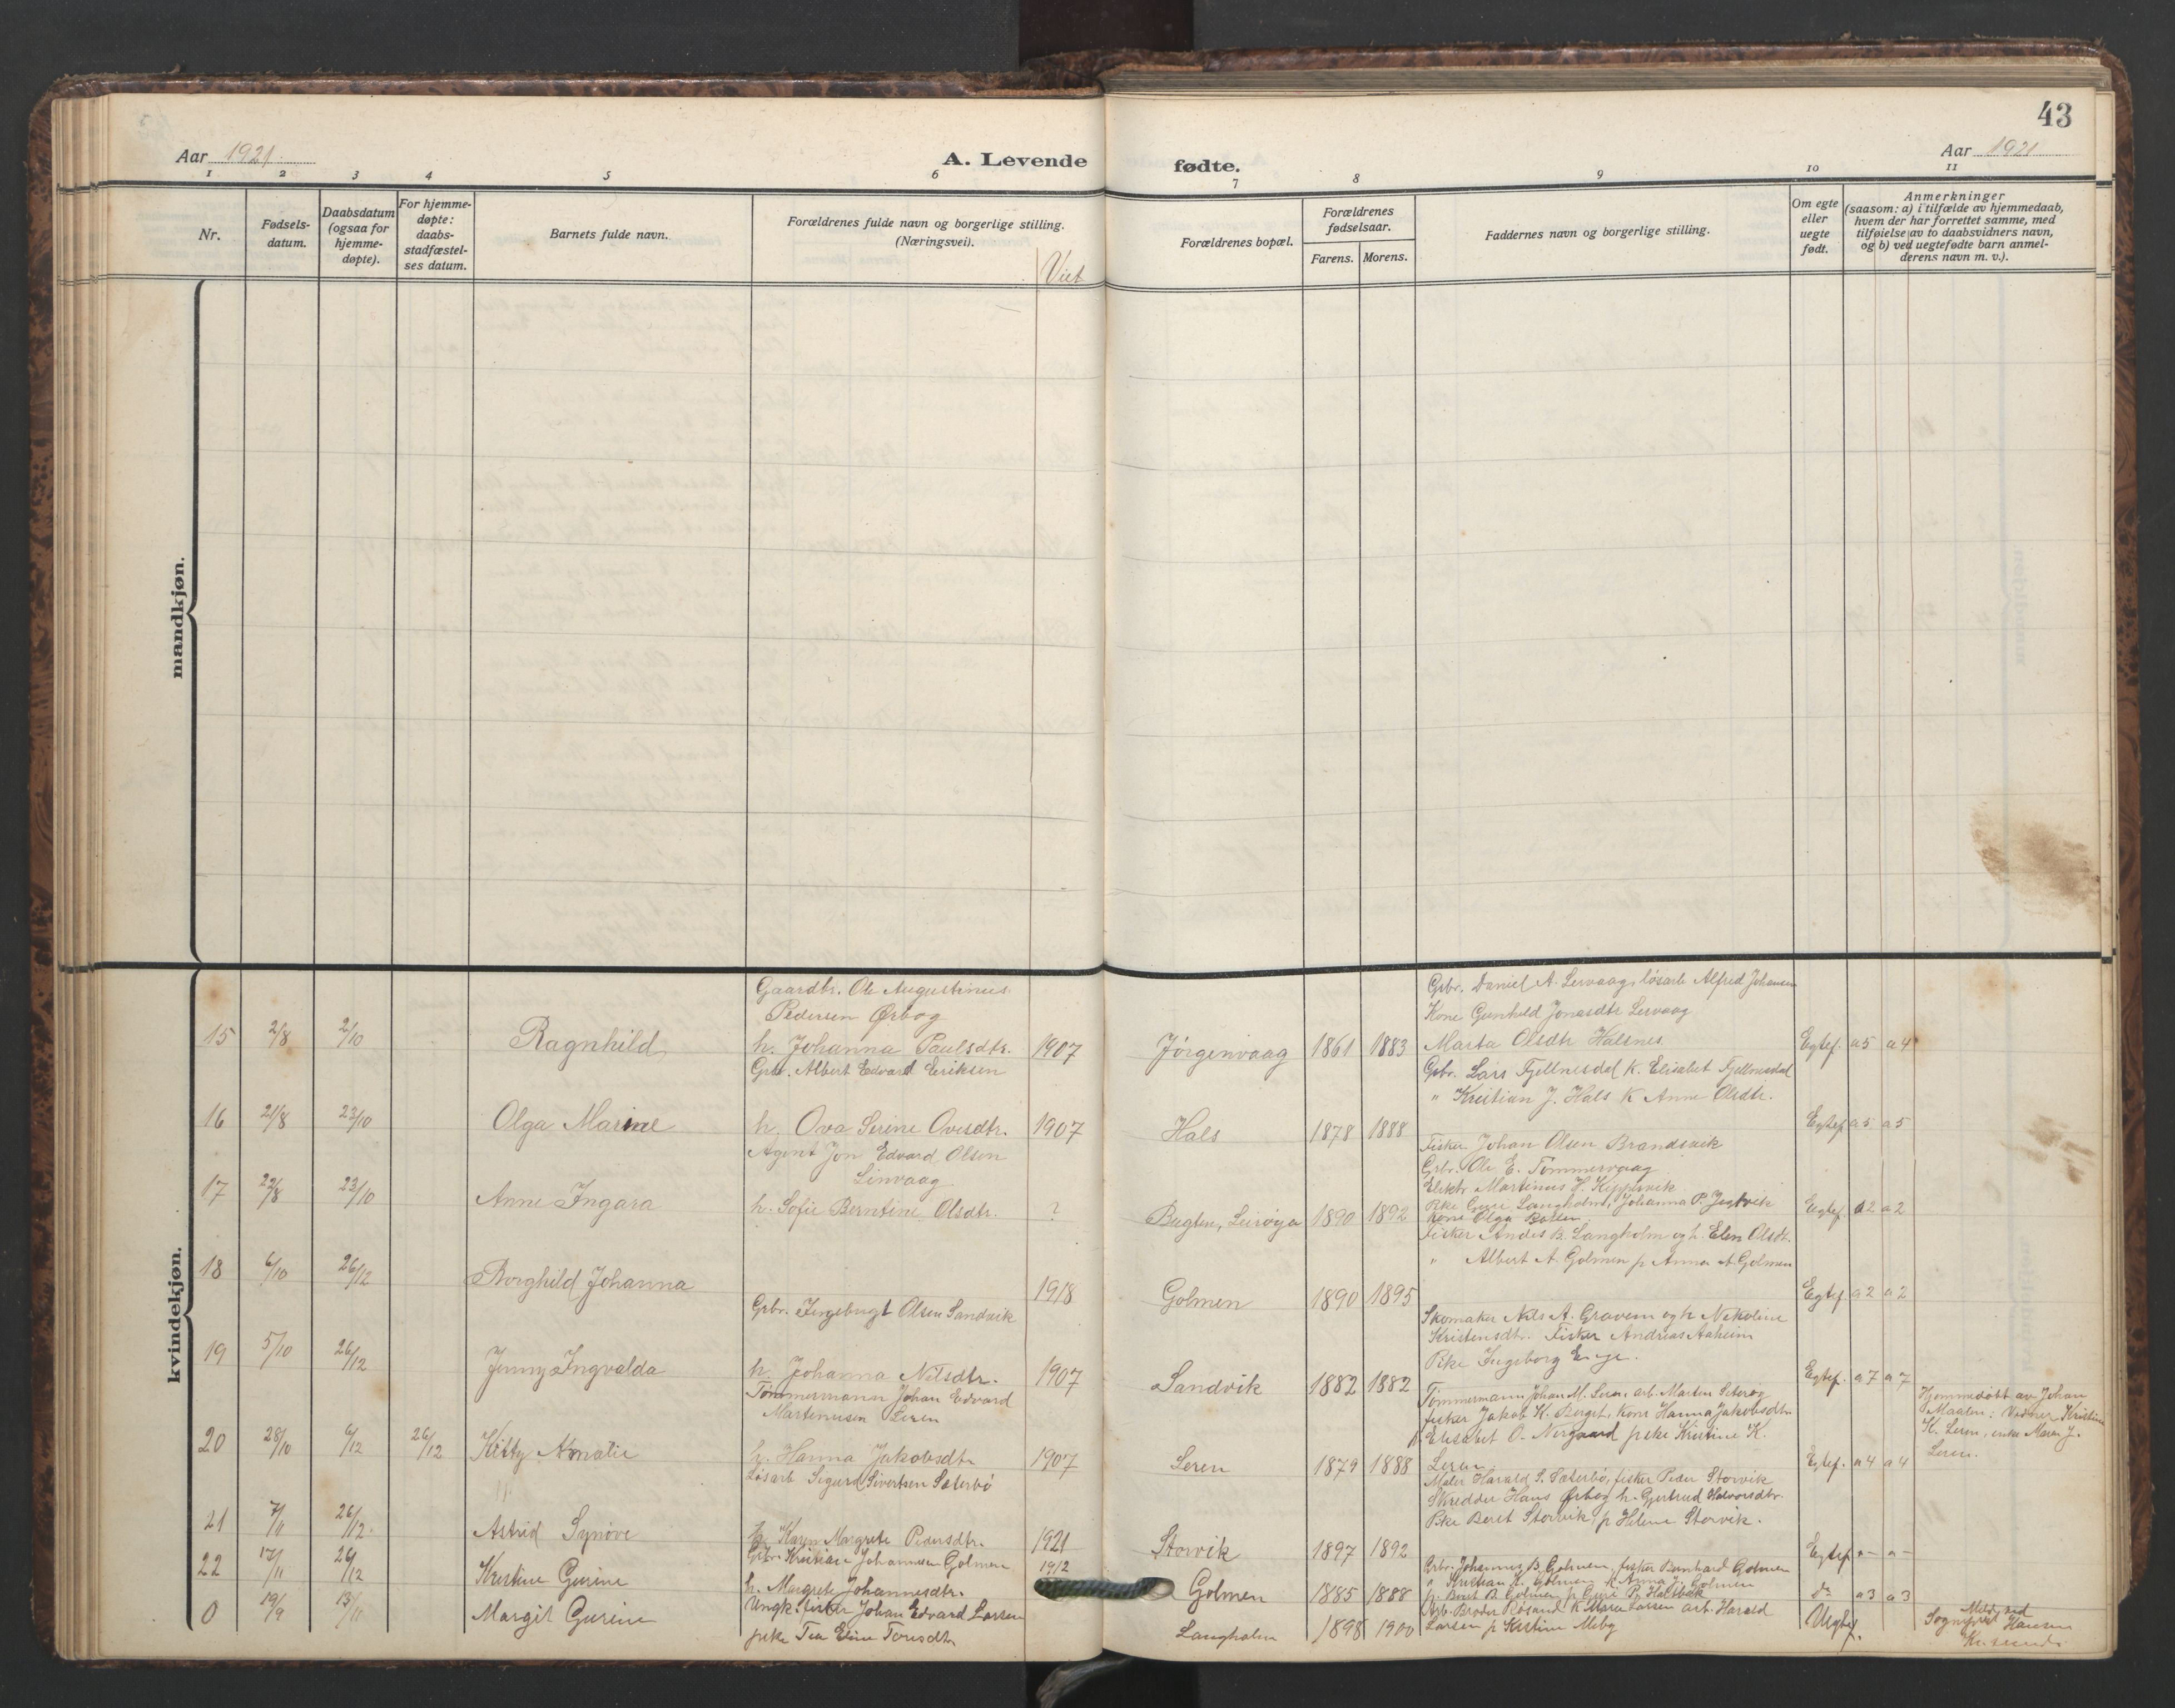 43
Aar 1921
A. Levende
fødte.
Aar 1921
1 2 3 4 5 6 7 8 9 10 11
Nr.
Fødsels-
datum.
Daabsdatum
(ogsaa for
hjemme-
døpte).
For hjemme-
døpte:
daabs-
stadfæstel-
ses datum.
Barnets fulde navn.
Forældrenes fulde navn og borgerlige stilling.
(Næringsvei).
Viet
Forældrenes bopæl.
Forældrenes
fødselsaar.
Farens. Morens.
Faddernes navn og borgerlige stilling.
Om egte
eller
uegte
født.
Anmerkninger
(saasom: a) i tilfælde av hjemmedaab,
hvem der har forrettet samme, med
tilføielse av to daabsvidners navn,
og b) ved uegtefødte barn anmel-
derens navn m. v.).
mandkjøn.
kvindekjøn.
15 2/8 2/10 Ragnhild
Gaardbr. Ole Augustinus
Pedersen Ørbog
h. Johanna Paulsdtr. 1907
Jørgenvaag 1861 1883
Grbr. Daniel A. Lervaag, løsarb Alfred Johansen
Kone Gunhild Jonasdtr Lervaag
Marta Olsdtr Halsnes
Egtef. a5 a4
16 21/8 23/10 Olga Marine
Grbr. Albert Edvard Eriksen
h. Ova Serine Ovesdtr. 1907
Hals 1878 1888
Grbr. Lars Fjellnesdal k. Elisabet Fjellnesdal
" Kristian J. Hals K Anne Olsdtr.
Egtef a5 a5
17 22/8 23/10 Anne Ingara
Agent Jon Edvard Olsen
Linvaag
h. Sofie Berntine Olsdtr. ?
Bugten, Leirøya 1890 1892
Fisker Johan Olsen Brandsvik
Grbr. Ole E. Tømmervaag
Elektr Martinus H. Kippervik
Pike Guri Langholm, Johanna P.
Kone Olga
Egtef. a2 a2
18 6/10 26/12 Borghild Johanna
1918
Golmen 1890 1895
Fisker Andes B. Langholm og h. Elen Olsdt.
" Albert A. Golmen p Anna A. Golmen
Egtef a2 a2
19 5/10 26/12 Jenny Ingvalda
Grbr. Ingebrigt Olsen Sandvik
h. Johanna Nilsdtr. 1907
Sandvik 1882 1882
Skomaker Nils A. Gravem og h Nikoline
Kristensdtr. Fisker Andreas Aaheim
Pike Ingeborg Enge.
Egtef. a7 a7
20 28/10 6/12 26/12 Kitty Amalie
Tømmermann Johan Edvard
Martinusen Leren
h. Hanna Jakobsdtr 1907
Leren 1879 1888
Tømmermann Johan M. Leren, arb. Marten Seterøy
fisker Jakob K. Berget, Kone Hanna Jakobsdtr
p. Elisabet O. Nergaard pike Kristine K.
Leren
Egtef. a4 a4
Hjemmedøbt av Johan
Maalen: Vidner Kristine
K. Leren, enke Maren J.
Leren.
21 7/11 26/12. Astrid Synøve
Løsarb Sigurd Sivertsen Sæterbø
h. Karen Margrete Pedersdtr. 1921
Storvik 1897 1892
Maler Harald S. Sæterbø, fisker Peder Storvik
Skredder Hans Ørbog h. Gjertrud Halvorsdtr.
Pike Beret Storvik, p Helene Storvik.
Egtef a- a-
22 17/11 26/12 Kristine Gurine
Grbr. Kristian Johannesen Golmen
h. Margrete Johannesdtr. 1912
Golmen 1885 1888
Grbr. Johannes B. Golmen, fisker Bernhard Golmen
" Kristian K. Golmen, k Anna J. Golmen
p. Beret B. Golmen p Guri P. Halsbæk
do a3 a3
0 19/9 13/11 Margit Gurine
Ungk. fisker Johan Edvard Larsen
pike Tea Eline Toresdtr
Langholm 1898 1900
Arb. Broder Røsand K Maren Larsen arb. Harald
Larsen p Kristine Meby
Uegtef.
Meldt ved
Sogneprest Hansen
Kr.sund.